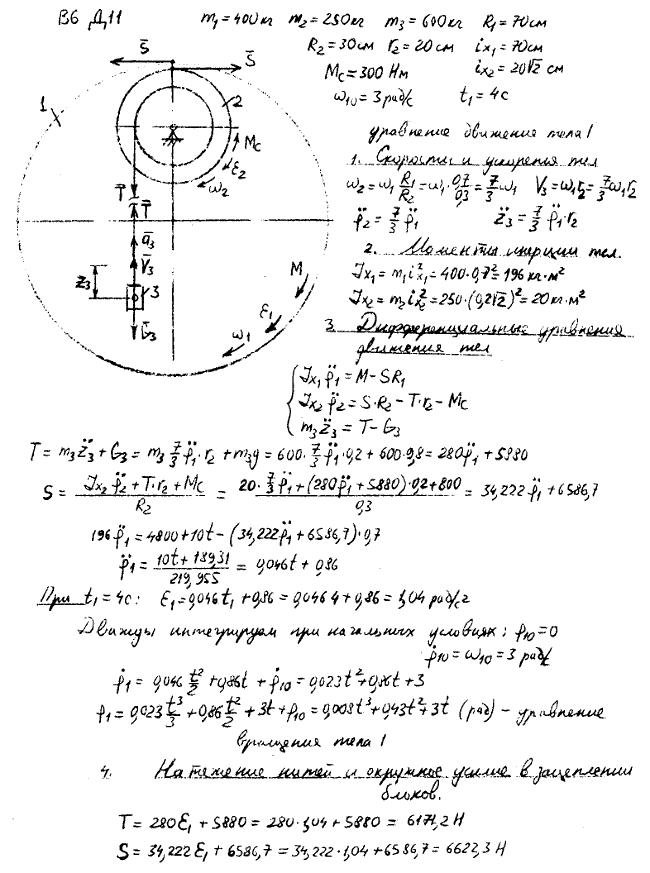 В6 Д11 m₁ = 400кг m₂ = 250кг m₃ = 600кг R₁ = 70см
R₂ = 30см r₂ = 20см iₓ₁ = 70см
M_C = 300 Нм iₓ₂ = 20√2 см
ω₁₀ = 3 рад/с t₁ = 4с
S̄ S̄
1 2
M_C
ε₂
ω₂
T̄
T̄
ā₃
V̄₃
z₃ 3
Ḡ₃
M
ε₁
ω₁
уравнение движение тела 1
1. Скорости и ускорения тел
ω₂ = ω₁ R₁/R₂ = ω₁ 0,7/0,3 = 7/3 ω₁ V₃ = ω₁r₂ = 7/3 ω₁r₂
φ̈₂ = 7/3 φ̈₁ z̈₃ = 7/3 φ̈₁·r₂
2. Моменты инерции тел.
Jₓ₁ = m₁i²ₓ₁ = 400·0,7² = 196 кг·м²
Jₓ₂ = m₂i²ₓ₂ = 250·(0,2√2)² = 20 кг·м²
3. Дифференциальные уравнения
движения тел
Jₓ₁φ̈₁ = M − SR₁
Jₓ₂φ̈₂ = S·R₂ − T·r₂ − M_C
m₃z̈₃ = T − G₃
T = m₃z̈₃ + G₃ = m₃ 7/3 φ̈₁·r₂ + m₃g = 600·7/3 φ̈₁·0,2 + 600·9,8 = 280φ̈₁ + 5880
S = (Jₓ₂φ̈₂ + T·r₂ + M_C)/R₂ = (20·7/3 φ̈₁ + (280φ̈₁ + 5880)·0,2 + 800)/0,3 = 34,222φ̈₁ + 6586,7
196φ̈₁ = 4800 + 10t − (34,222φ̈₁ + 6586,7)·0,7
φ̈₁ = (10t + 189,31)/219,955 = 0,046t + 0,86
При t₁ = 4с: ε₁ = 0,046t₁ + 0,86 = 0,046·4 + 0,86 = 1,04 рад/с²
Дважды интегрируем при начальных условиях: φ₁₀ = 0
φ̇₁₀ = ω₁₀ = 3 рад/с
φ̇₁ = 0,046 t²/2 + 0,86t + φ̇₁₀ = 0,023t² + 0,86t + 3
φ₁ = 0,023 t³/3 + 0,86 t²/2 + 3t + φ₁₀ = 0,008t³ + 0,43t² + 3t (рад) − уравнение
вращения тела 1
4. Натяжение нитей и окружное усилие в зацеплении
блоков.
T = 280ε₁ + 5880 = 280·1,04 + 5880 = 6171,2 Н
S = 34,222ε₁ + 6586,7 = 34,222·1,04 + 6586,7 = 6622,3 Н